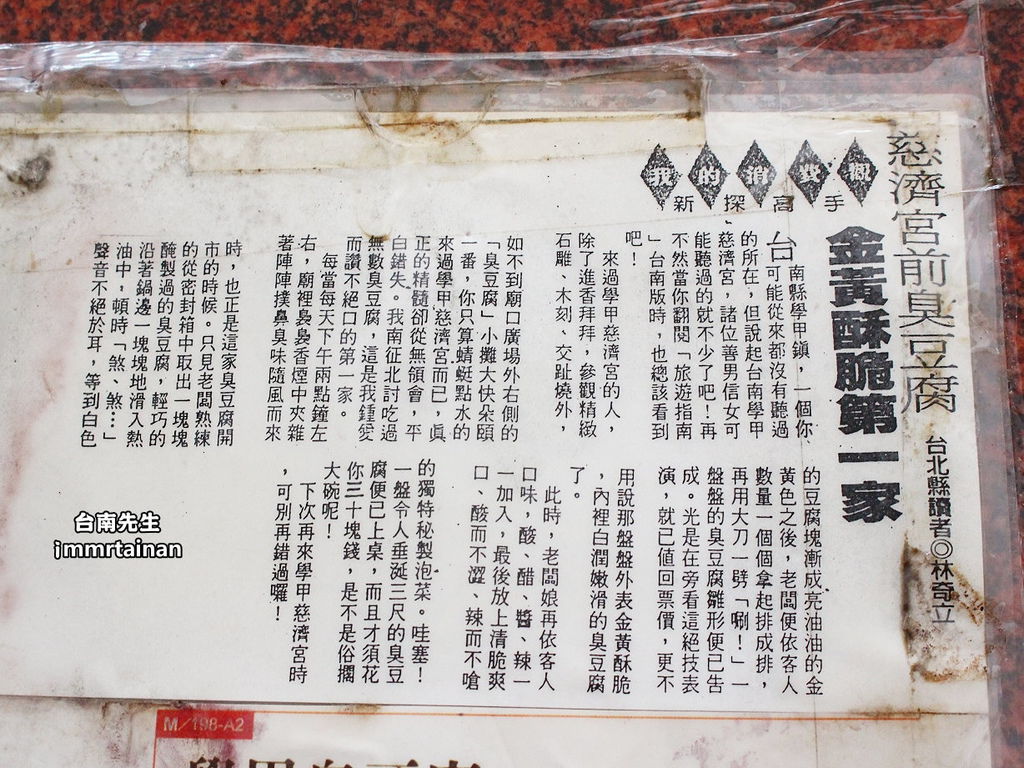 慈濟宮前臭豆腐
台北縣讀者◎林奇立
我的消費欄
新探高手
金黃酥脆第一家
台南縣學甲鎮，一個你
可能從來都沒有聽過
的所在，但說起台南學甲
慈濟宮，諸位善男信女可
能聽過的就不少了吧！再
不然當你翻閱「旅遊指南
」台南版時，也總該看到
吧！
來過學甲慈濟宮的人，
除了進香拜拜，參觀精緻
石雕、木刻、交趾燒外，
如不到廟口廣場外右側的
「臭豆腐」小攤大快朵頤
一番，你只算蜻蜓點水的
來過學甲慈濟宮而已，真
正的精髓卻從無領會，平
白錯失。我南征北討吃過
無數臭豆腐，這是我鍾愛
而讚不絕口的第一家。
每當每天下午兩點鐘左
右，廟裡裊裊香煙中夾雜
著陣陣撲鼻臭味隨風而來
時，也正是這家臭豆腐開
市的時候。只見老闆熟練
的從密封箱中取出一塊塊
醃製過的臭豆腐，輕巧的
沿著鍋邊一塊塊地滑入熱
油中，頓時「煞、煞…」
聲音不絕於耳，等到白色
的豆腐塊漸成亮油油的金
黃色之後，老闆便依客人
數量一個個拿起排成排，
再用大刀一劈「唰！」一
盤盤的臭豆腐雛形便已告
成。光是在旁看這絕技表
演，就已值回票價，更不
用說那盤盤外表金黃酥脆
，內裡白潤嫩滑的臭豆腐
了。
此時，老闆娘再依客人
口味，酸、醋、醬、辣一
一加入，最後放上清脆爽
口、酸而不澀、辣而不嗆
的獨特秘製泡菜。哇塞！
一盤令人垂涎三尺的臭豆
腐便已上桌，而且才須花
你三十塊錢，是不是俗擱
大碗呢！
下次再來學甲慈濟宮時
，可別再錯過囉！
台南先生
immrtainan
M／198-A2